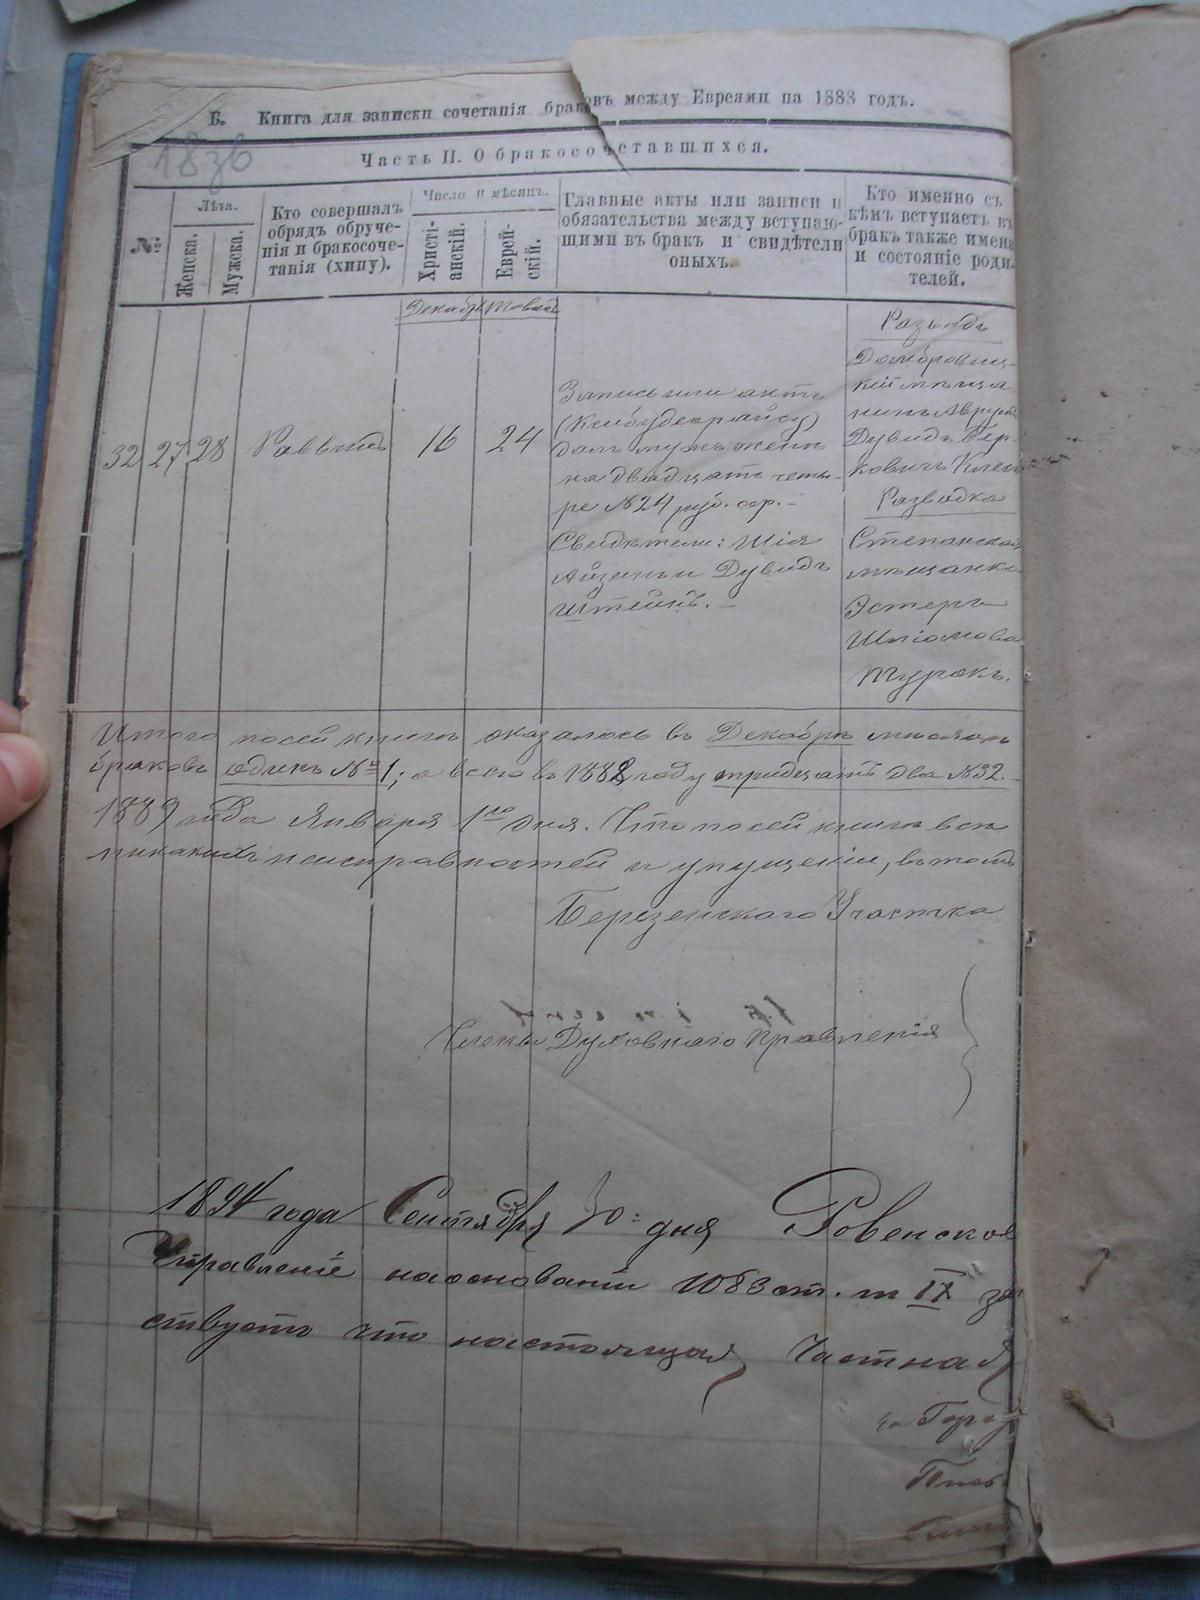 Б. Книга для записки сочетанія браковъ между Евреями на 1888 годъ.
183в
Часть II. О бракосочетавшихся.
№
Лѣта.
Женска.
Мужска.
Кто совершалъ
обрядъ обруче-
нія и бракосоче-
танія (хипу).
Число и мѣсяцъ.
Христі-
анскій.
Еврей-
скій.
Главные акты или записи и
обязательства между вступаю-
щими въ бракъ и свидѣтели
оныхъ.
Кто именно съ
кѣмъ вступаетъ въ
бракъ также имена
и состояніе роди-
телей.
Декабрь Тевесъ
32 27 28 Раввинъ 16 24
Запись или актъ
далъ мужъ женѣ
на двадцать четы-
ре №24 руб. сер. –
Свидѣтели: Шія
Айзинъ и Дувидъ
Штейнъ. –
Разводъ
Домбровиц-
кій мѣща
нинъ Аврумъ
Дувидъ Бер-
ковичъ
Разводка
Степанская
мѣщанка
Эстеръ
Шліомова
Турокъ.
Итого по сей книгѣ оказалось въ Декабрѣ мѣсяцѣ
браковъ одинъ № 1; а всего въ 1888 году тридцать два №32. –
1889 года Января 1го дня. Что по сей книгѣ нѣтъ
никакихъ неисправностей и упущеній, въ томъ
Березенскаго Участка
Члены Духовнаго Правленія
1894 года Сентября 30 дня Ровенское
Управленіе на основаніи 1083 ст. т IX
ствуетъ что настоящая Частная
за Город